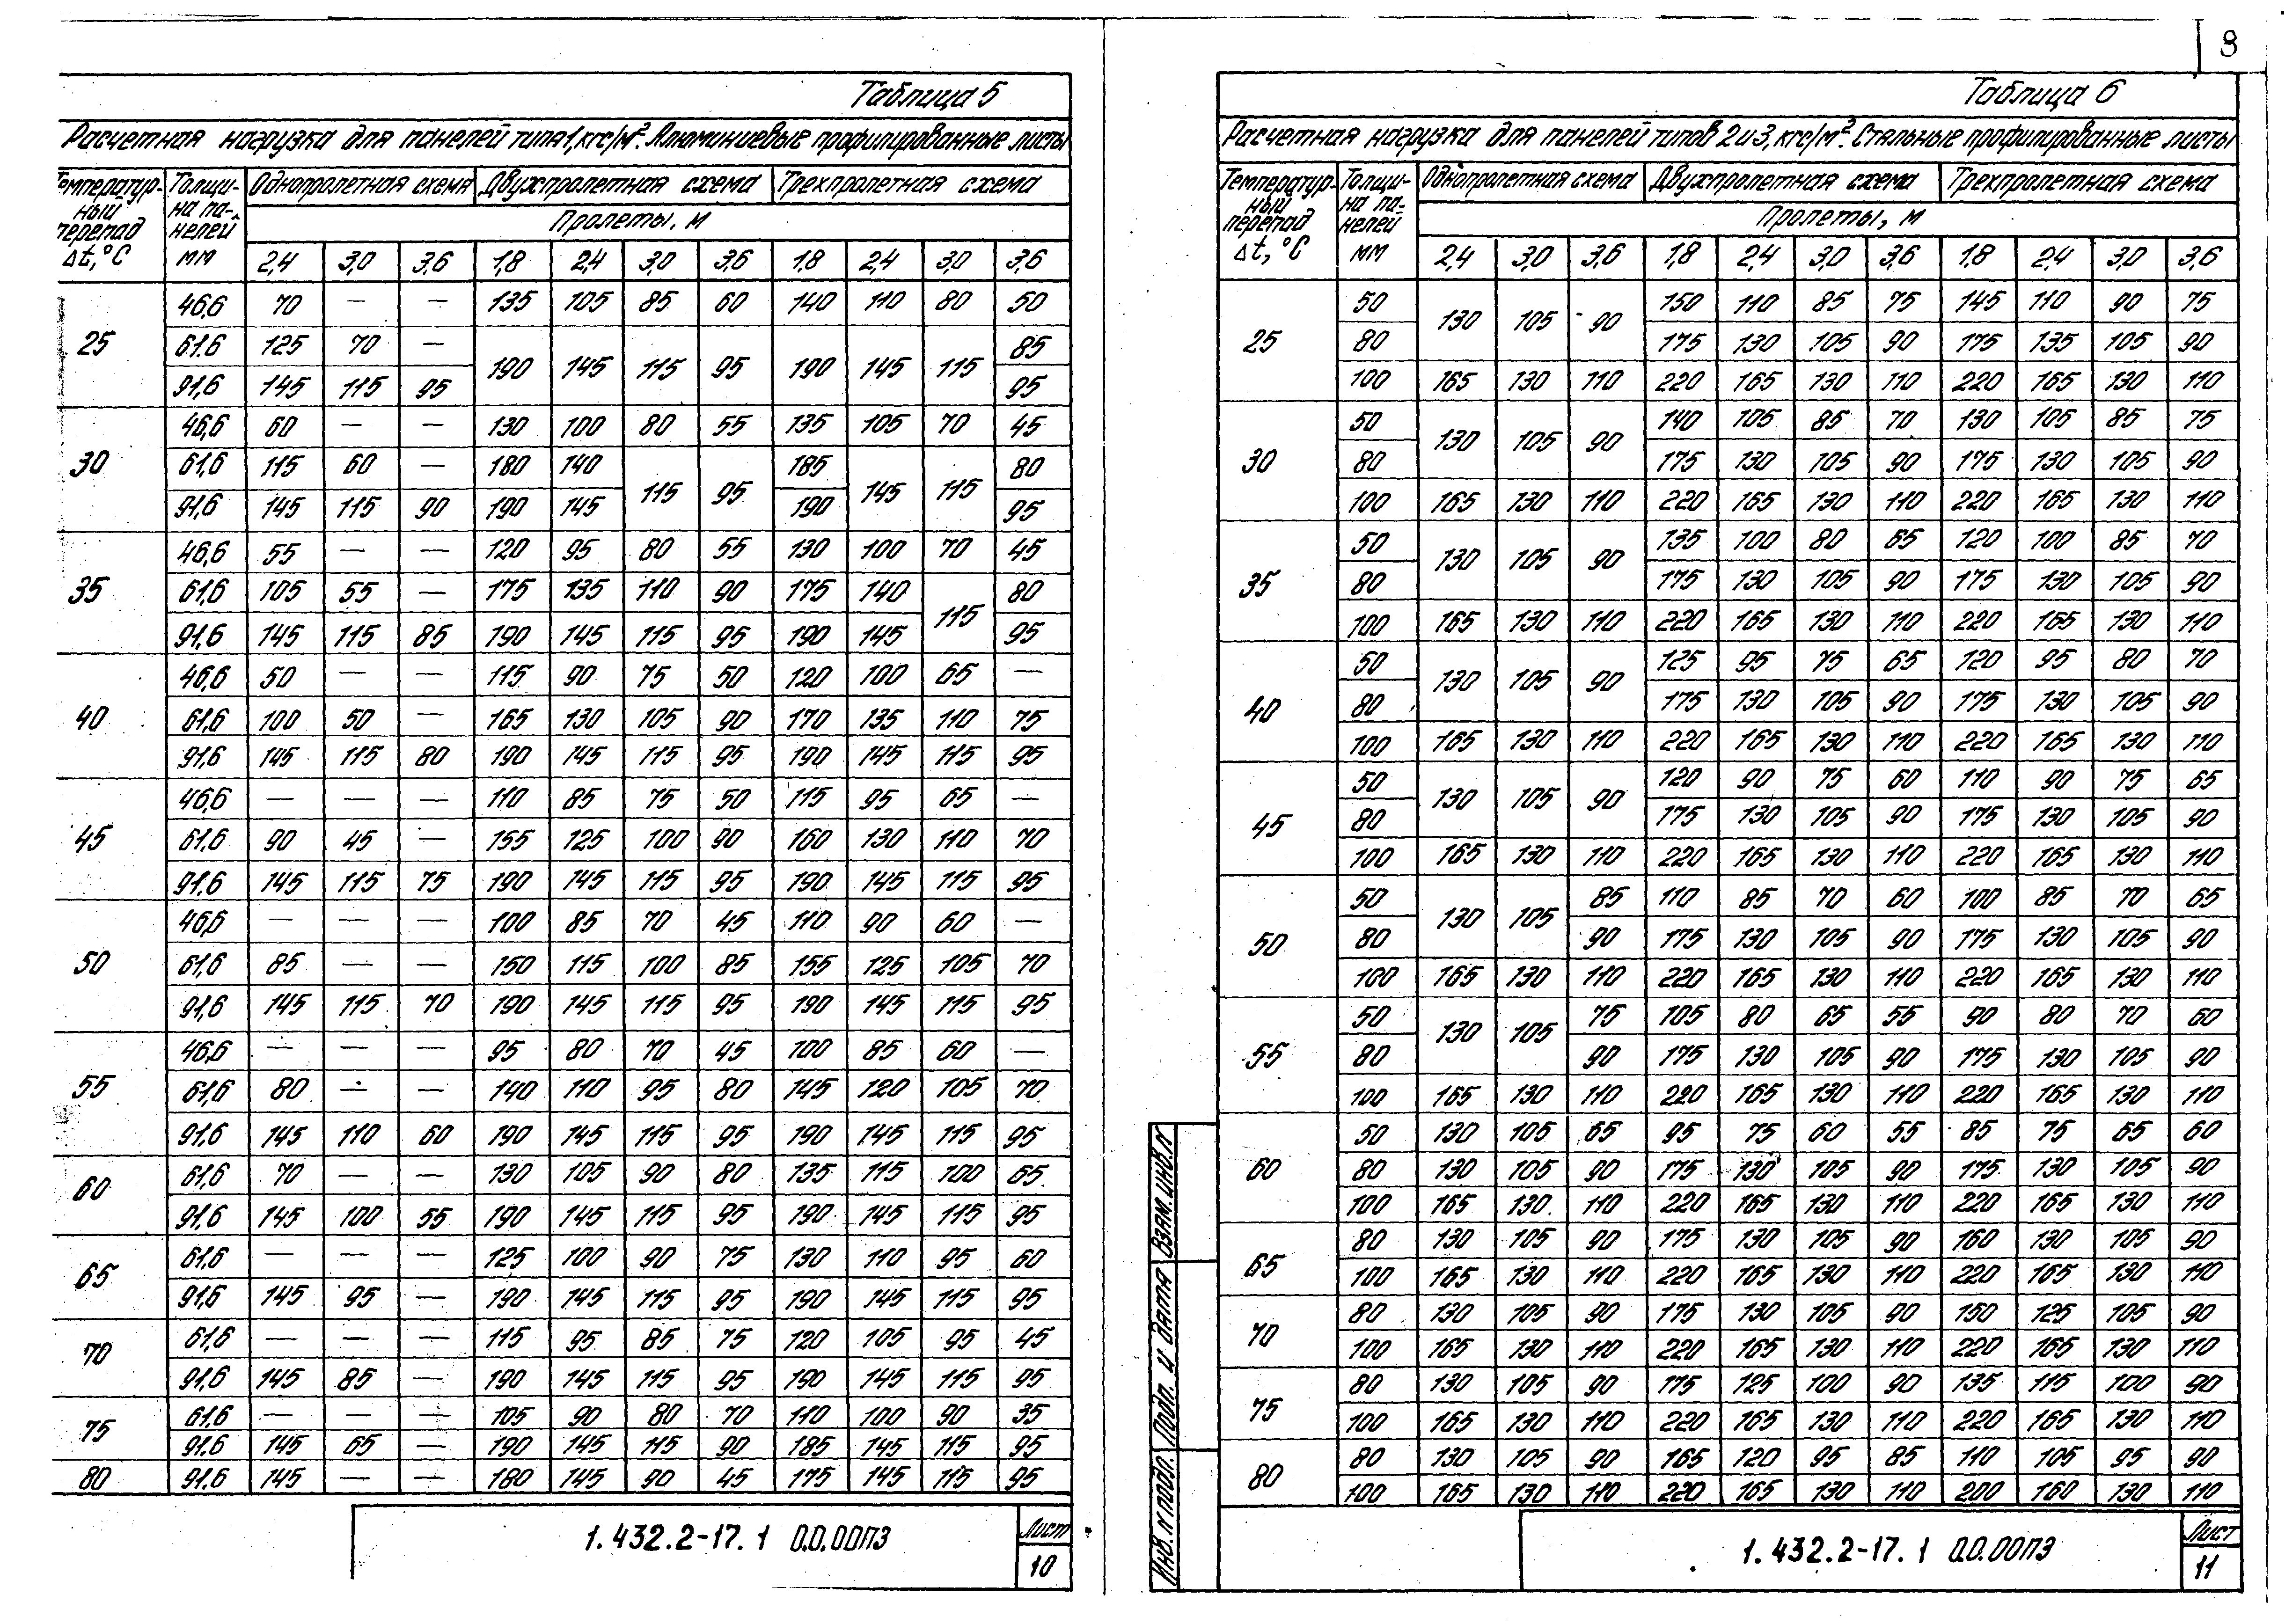 8
Таблица 5
Расчетная нагрузка для панелей типа 1, кгс/м². Алюминиевые профилированные листы
Температурный перепад Δt, °С | Толщина панелей мм | Однопролетная схема | Двухпролетная схема | Трехпролетная схема
Пролеты, м
2,4 3,0 3,6 1,8 2,4 3,0 3,6 1,8 2,4 3,0 3,6
25
46,6 70 — — 135 105 85 60 140 110 80 50
61.6 125 70 — 190 145 115 95 190 145 115 85
91,6 145 115 95 95
30
46,6 60 — — 130 100 80 55 135 105 70 45
61,6 115 60 — 180 140 115 95 185 145 115 80
91,6 145 115 90 190 145 190 95
35
46,6 55 — — 120 95 80 55 130 100 70 45
61,6 105 55 — 175 135 110 90 175 140 115 80
91,6 145 115 85 190 145 115 95 190 145 95
40
46,6 50 — — 115 90 75 50 120 100 65 —
61,6 100 50 — 165 130 105 90 170 135 110 75
91,6 145 115 80 190 145 115 95 190 145 115 95
45
46,6 — — — 110 85 75 50 115 95 65 —
61,6 90 45 — 155 125 100 90 160 130 110 70
91,6 145 115 75 190 145 115 95 190 145 115 95
50
46,6 — — — 100 85 70 45 110 90 60 —
61,6 85 — — 150 115 100 85 155 125 105 70
91,6 145 115 70 190 145 115 95 190 145 115 95
55
46,6 — — — 95 80 70 45 100 85 60 —
61,6 80 — — 140 110 95 80 145 120 105 70
91,6 145 110 60 190 145 115 95 190 145 115 95
60
61,6 70 — — 130 105 90 80 135 115 100 65
91,6 145 100 55 190 145 115 95 190 145 115 95
65
61,6 — — — 125 100 90 75 130 110 95 60
91,6 145 95 — 190 145 115 95 190 145 115 95
70
61,6 — — — 115 95 85 75 120 105 95 45
91,6 145 85 — 190 145 115 95 190 145 115 95
75
61,6 — — — 105 90 80 70 110 100 90 35
91.6 145 65 — 190 145 115 90 185 145 115 95
80 91.6 145 — — 180 145 90 45 175 145 115 95
1.432.2-17.1 0.0.00ПЗ
Лист
10
Таблица 6
Расчетная нагрузка для панелей типов 2 и 3, кгс/м². Стальные профилированные листы
Температурный перепад Δt, °С | Толщина панелей мм | Однопролетная схема | Двухпролетная схема | Трехпролетная схема
Пролеты, м
2,4 3,0 3,6 1,8 2,4 3,0 3,6 1,8 2,4 3,0 3,6
25
50 130 105 90 150 110 85 75 145 110 90 75
80 175 130 105 90 175 135 105 90
100 165 130 110 220 165 130 110 220 165 130 110
30
50 130 105 90 140 105 85 70 130 105 85 75
80 175 130 105 90 175 130 105 90
100 165 130 110 220 165 130 110 220 165 130 110
35
50 130 105 90 135 100 80 65 120 100 85 70
80 175 130 105 90 175 130 105 90
100 165 130 110 220 165 130 110 220 165 130 110
40
50 130 105 90 125 95 75 65 120 95 80 70
80 175 130 105 90 175 130 105 90
100 165 130 110 220 165 130 110 220 165 130 110
45
50 130 105 90 120 90 75 60 110 90 75 65
80 175 130 105 90 175 130 105 90
100 165 130 110 220 165 130 110 220 165 130 110
50
50 130 105 85 110 85 70 60 100 85 70 65
80 90 175 130 105 90 175 130 105 90
100 165 130 110 220 165 130 110 220 165 130 110
55
50 130 105 75 105 80 65 55 90 80 70 60
80 90 175 130 105 90 175 130 105 90
100 165 130 110 220 165 130 110 220 165 130 110
60
50 130 105 65 95 75 60 55 85 75 65 60
80 130 105 90 175 130 105 90 175 130 105 90
100 165 130 110 220 165 130 110 220 165 130 110
65
80 130 105 90 175 130 105 90 160 130 105 90
100 165 130 110 220 165 130 110 220 165 130 110
70
80 130 105 90 175 130 105 90 150 125 105 90
100 165 130 110 220 165 130 110 220 165 130 110
75
80 130 105 90 175 125 100 90 135 115 100 90
100 165 130 110 220 165 130 110 220 165 130 110
80
80 130 105 90 165 120 95 85 110 105 95 90
100 165 130 110 220 165 130 110 200 160 130 110
Инв. N подл. Подп. и дата Взам. инв. N
1.432.2-17.1 0.0.00ПЗ
Лист
11